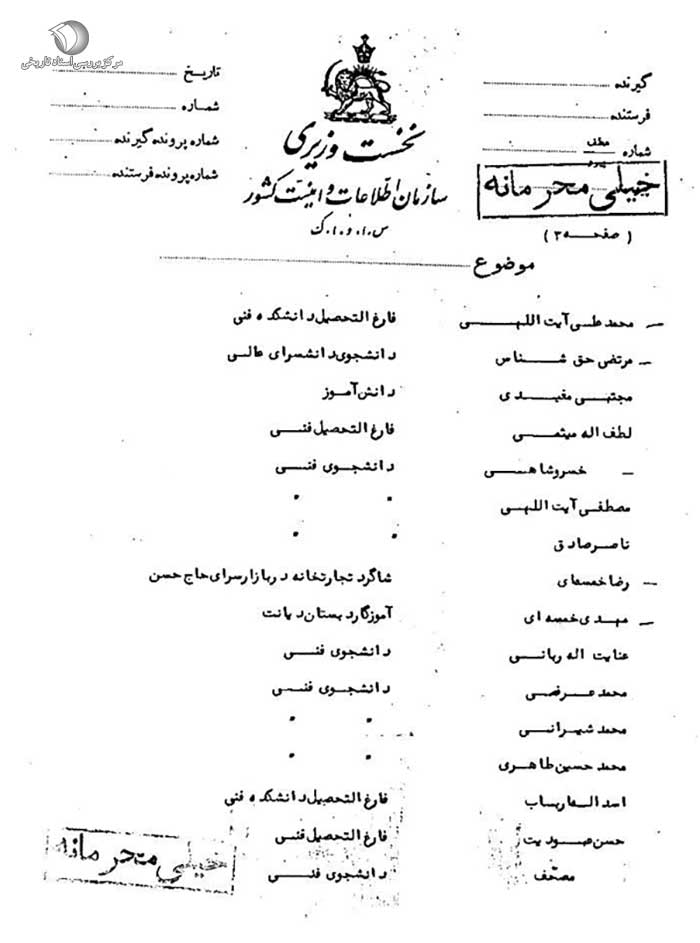 مرکز بررسی اسناد تاریخی
گیرنده
فرستنده
شماره
تاریخ
شماره
شماره پرونده گیرنده
شماره پرونده فرستنده
نخست وزیری
سازمان اطلاعات و امنیت کشور
س.ا.و.ا.ک
خیلی محرمانه
( صفحه ۳ )
موضوع
ــ محمد علی آیت اللهی فارغ التحصیل دانشکده فنی
ــ مرتضی حق شناس دانشجوی دانشسرای عالی
مجتبی مفیدی دانش آموز
لطف اله میثمی فارغ التحصیل فنی
ــ خسروشاهی دانشجوی فنی
مصطفی آیت اللهی " "
ناصر صادق " "
ــ رضا خمسه‌ای شاگرد تجارتخانه در بازار سرای حاج حسن
ــ مهدی خمسه ای آموزگار دبستان دیانت
عنایت اله ربانی دانشجوی فنی
محمد عرفی دانشجوی فنی
محمد شیرانی " "
محمد حسین طاهری " "
اسد فارغ التحصیل دانشکده فنی
حسن فارغ التحصیل فنی
مصحف دانشجوی فنی
خیلی محرمانه